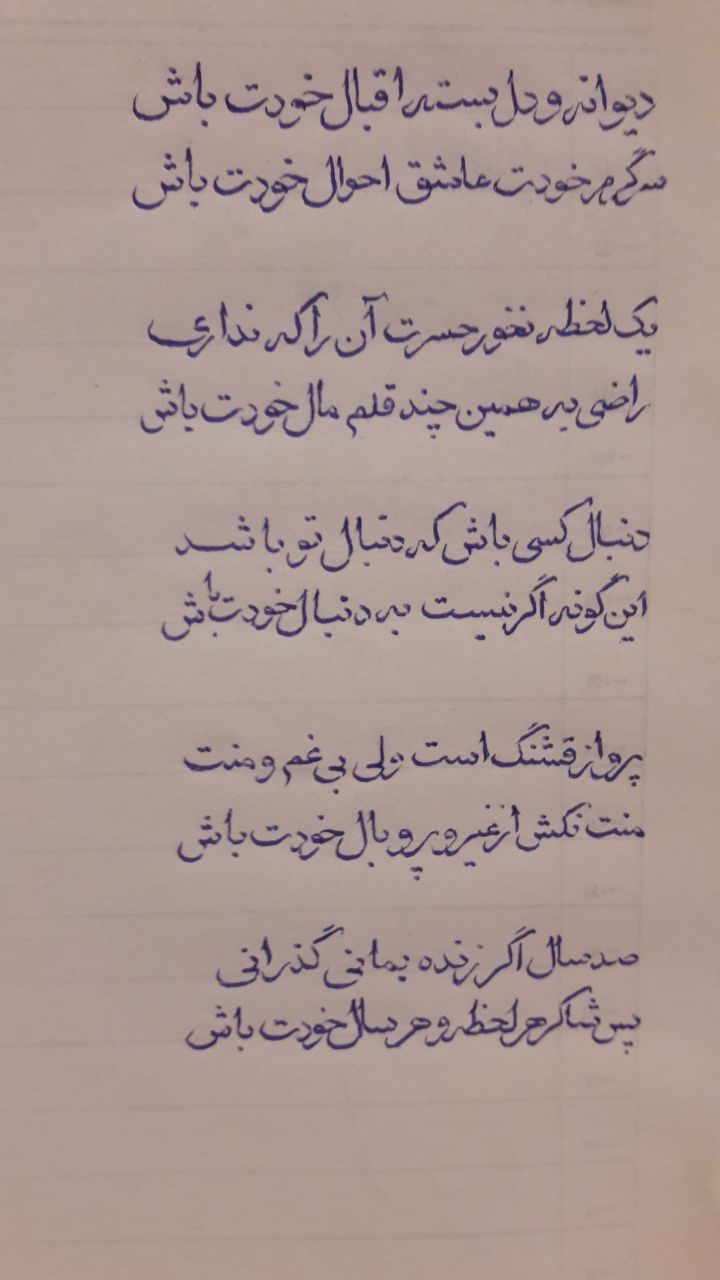 دیوانه و دل بسته اقبال خودت باش
سرگرم خودت عاشق احوال خودت باش
یک لحظه نخور حسرت آن را که نداری
راضی به همین چند قلم مال خودت باش
دنبال کسی باش که دنبال تو باشد
این گونه اگر نیست به دنبال خودت باش
پرواز قشنگ است ولی بی غم و منت
منت نکش از غیر و پر و بال خودت باش
صد سال اگر زنده بمانی گذرانی
پس شاکر هر لحظه و هر سال خودت باش